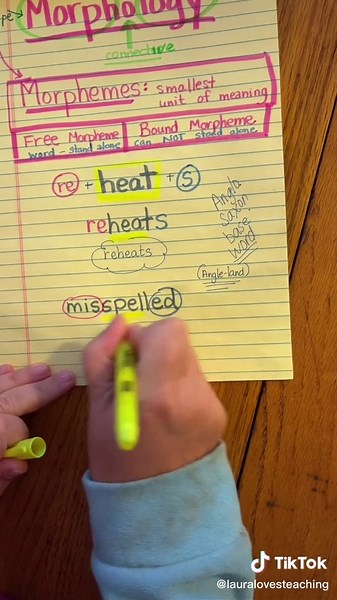 Morphology
connective
Morphemes: smallest
unit of meaning
Free Morpheme
word - stand alone
Bound Morpheme
can NOT stand alone
re + heat + s
reheats
reheats
Anglo
saxon
base
word
(Angle-land)
misspelled
TikTok
@lauralovesteaching